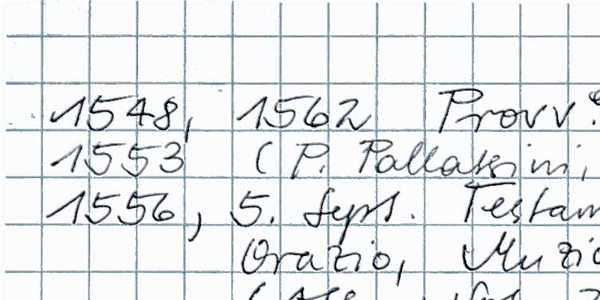 1548, 1562 Provv.
1553 (P. Pallassini,
1556, 5. Sept. Testam
Orazio, Muzio